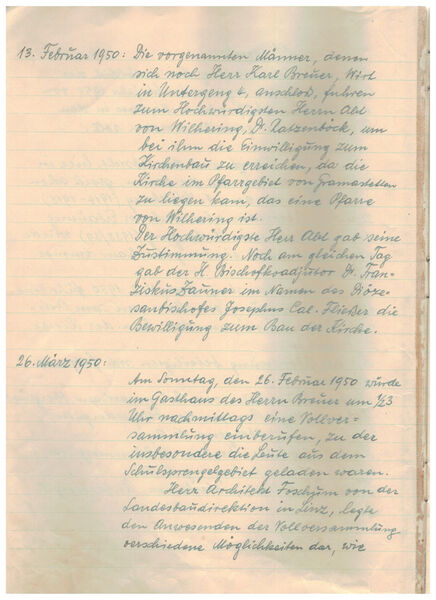 13. Februar 1950: Die vorgenannten Männer, denen
sich noch Herr Karl Breuer, Wirt
in Untergeng 6, anschloß, fuhren
zum Hochwürdigsten Herrn Abt
von Wilhering, Dr. Ratzenböck, um
bei ihm die Einwilligung zum
Kirchenbau zu erreichen, da die
Kirche im Pfarrgebiet von Gramastetten
zu liegen kam, das eine Pfarre
von Wilhering ist.
Der Hochwürdigste Herr Abt gab seine
Zustimmung. Noch am gleichen Tag
gab der H. Bischofkoadjutor Dr. Fran-
ziskus Zauner im Namen des Diöze-
sanbischofes Josephus Cal. Fließer die
Bewilligung zum Bau der Kirche.
26. März 1950:
Am Sonntag, den 26. Februar 1950 wurde
im Gasthaus des Herrn Breuer um 1/23
Uhr nachmittags eine Vollver=
sammlung einberufen, zu der
insbesondere die Leute aus dem
Schulsprengelgebiet geladen waren.
Herr Architekt Foschum von der
Landesbaudirektion in Linz, legte
den Anwesenden der Vollversammlung
verschiedene Möglichkeiten dar, wie